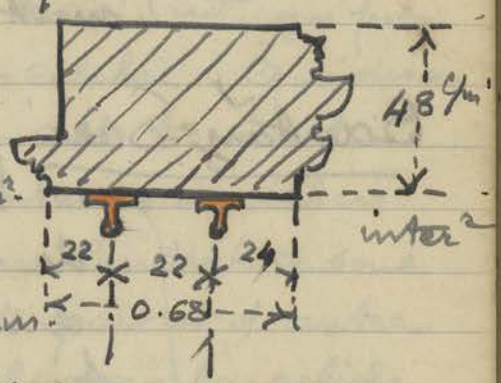 48 c/m
inter²
22 22 24
0.68
m.